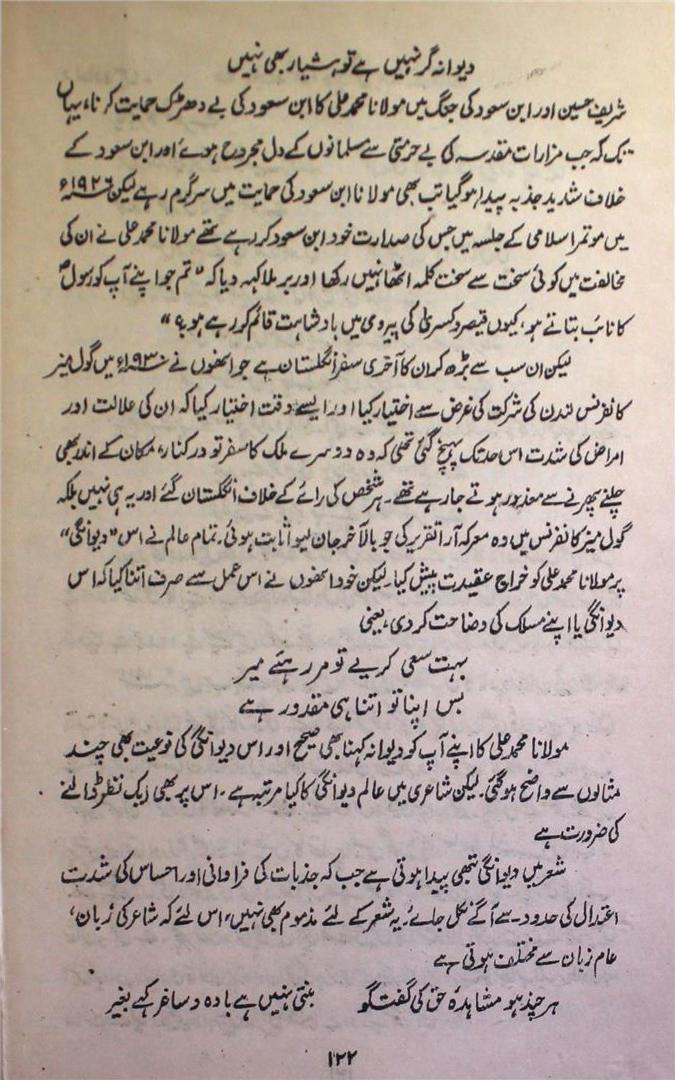 دیوانہ گر نہیں ہے تو ہشیار بھی نہیں
شریف حسین اور ابن سعود کی جنگ میں مولانا محمد علی کا ابن سعود کی بے دھڑک حمایت کرنا، یہاں
تک کہ جب مزارات مقدسہ کی بے حرمتی سے مسلمانوں کے دل مجروح ہوئے اور ابن سعود کے
خلاف شدید جذبہ پیدا ہوگیا تب بھی مولانا ابن سعود کی حمایت میں سرگرم رہے لیکن ۱۹۲۶ء
میں موتمر اسلامی کے جلسہ میں جس کی صدارت خود ابن سعود کر رہے تھے مولانا محمد علی نے ان کی
مخالفت میں کوئی سخت سے سخت کلمہ اٹھا نہیں رکھا اور برملا کہہ دیا کہ "تم جو اپنے آپ کو رسولؐ
کا نائب بتاتے ہو، کیوں قیصر و کسریٰ کی پیروی میں بادشاہت قائم کر رہے ہو؟"
لیکن ان سب سے بڑھ کر ان کا آخری سفر انگلستان ہے جو انھوں نے ۱۹۳۰ء میں گول میز
کانفرنس لندن کی شرکت کی غرض سے اختیار کیا اور ایسے وقت اختیار کیا کہ ان کی علالت اور
امراض کی شدت اس حد تک پہنچ گئی تھی کہ وہ دوسرے ملک کا سفر تو درکنار، مکان کے اندر بھی
چلنے پھرنے سے معذور ہوتے جا رہے تھے۔ ہر شخص کی رائے کے خلاف انگلستان گئے اور یہ ہی نہیں بلکہ
گول میز کانفرنس میں وہ معرکہ آرا تقریر کی جو بالآخر جان لیوا ثابت ہوئی۔ تمام عالم نے اس "دیوانگی"
پر مولانا محمد علی کو خراج عقیدت پیش کیا۔ لیکن خود انھوں نے اس عمل سے صرف اتنا کیا کہ اس
دیوانگی یا اپنے مسلک کی وضاحت کردی، یعنی
بہت سعی کریے تو مر رہئے میر
بس اپنا تو اتنا ہی مقدور ہے
مولانا محمد علی کا اپنے آپ کو دیوانہ کہنا بھی صحیح اور اس دیوانگی کی نوعیت بھی چند
مثالوں سے واضح ہوگئی۔ لیکن شاعری میں عالم دیوانگی کا کیا مرتبہ ہے، اس پر بھی ایک نظر ڈالنے
کی ضرورت ہے
شعر میں دیوانگی تبھی پیدا ہوتی ہے جب کہ جذبات کی فراوانی اور احساس کی شدت
اعتدال کی حدود سے آگے نکل جائے۔ یہ شعر کے لئے مذموم بھی نہیں، اس لئے کہ شاعر کی زبان،
عام زبان سے مختلف ہوتی ہے
ہر چند ہو مشاہدۂ حق کی گفتگو بنتی نہیں ہے بادہ و ساغر کہے بغیر
۱۲۲